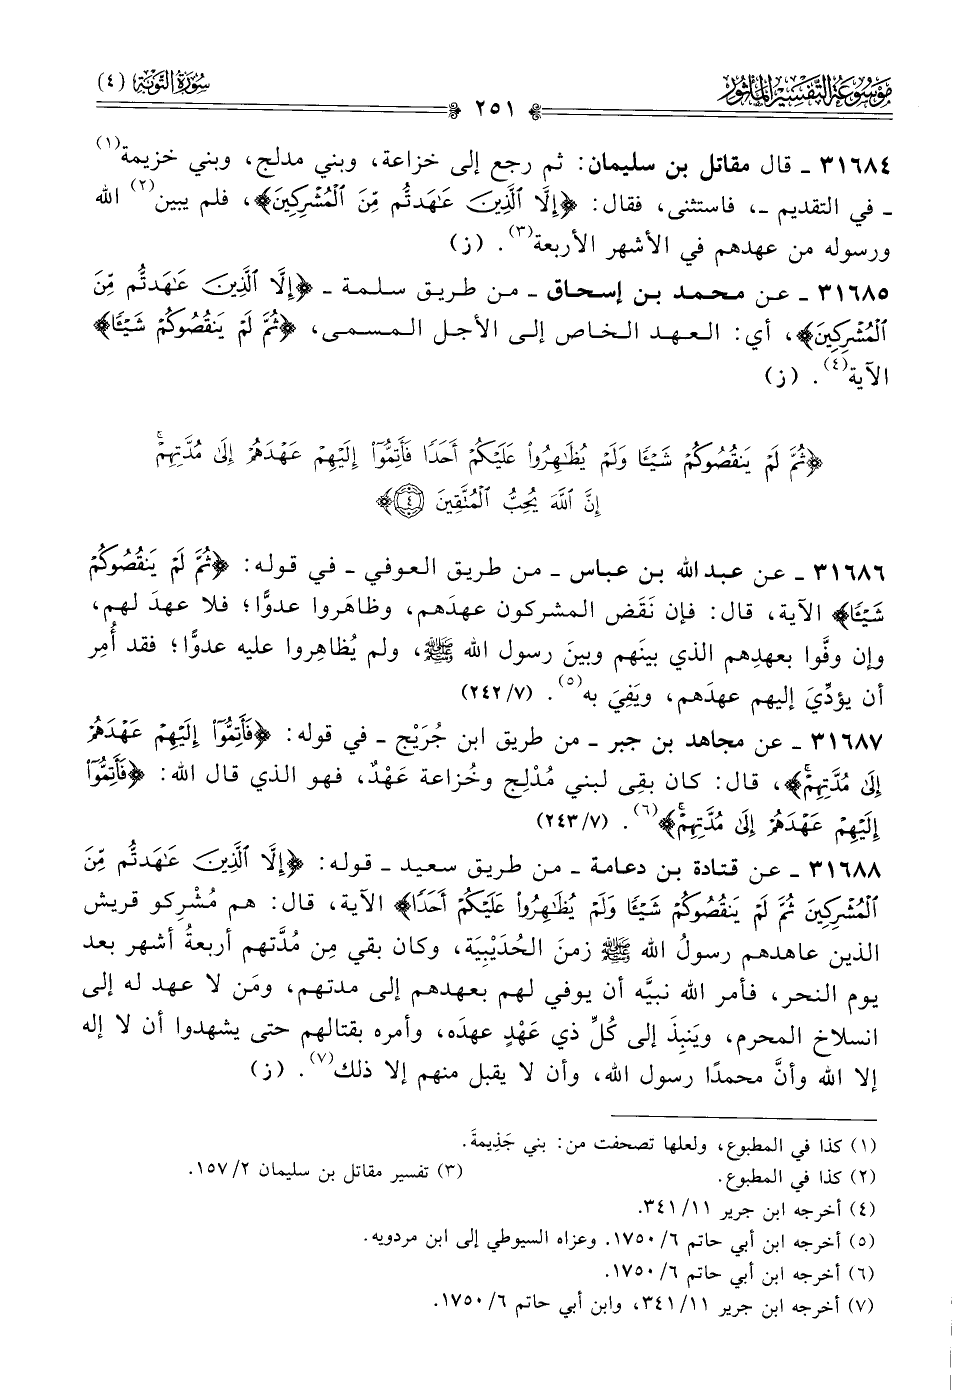 موسوعة التفسير المأثور
٢٥١
سورة التوبة (٤)
٣١٦٨٤ ـ قال مقاتل بن سليمان: ثم رجع إلى خزاعة، وبني مدلج، وبني خزيمة(١)
ـ في التقديم ـ، فاستثنى، فقال: ﴿إِلَّا ٱلَّذِينَ عَٰهَدتُّم مِّنَ ٱلْمُشْرِكِينَ﴾، فلم يبين(٢) الله
ورسوله من عهدهم في الأشهر الأربعة(٣). (ز)
٣١٦٨٥ ـ عن محمد بن إسحاق ـ من طريق سلمة ـ ﴿إِلَّا ٱلَّذِينَ عَٰهَدتُّم مِّنَ
ٱلْمُشْرِكِينَ﴾، أي: العهد الخاص إلى الأجل المسمى، ﴿ثُمَّ لَمْ يَنقُصُوكُمْ شَيْـًٔا﴾
الآية(٤). (ز)
﴿ثُمَّ لَمْ يَنقُصُوكُمْ شَيْـًٔا وَلَمْ يُظَٰهِرُوا۟ عَلَيْكُمْ أَحَدًا فَأَتِمُّوٓا۟ إِلَيْهِمْ عَهْدَهُمْ إِلَىٰ مُدَّتِهِمْ ۚ
إِنَّ ٱللَّهَ يُحِبُّ ٱلْمُتَّقِينَ ٤﴾
٣١٦٨٦ ـ عن عبدالله بن عباس ـ من طريق العوفي ـ في قوله: ﴿ثُمَّ لَمْ يَنقُصُوكُمْ
شَيْـًٔا﴾ الآية، قال: فإن نَقَض المشركون عهدَهم، وظاهَروا عدوًّا؛ فلا عهدَ لهم،
وإن وفَّوا بعهدِهم الذي بينَهم وبينَ رسول الله ﷺ، ولم يُظاهِروا عليه عدوًّا؛ فقد أُمِر
أن يؤدِّيَ إليهم عهدَهم، ويَفِيَ به(٥). (٧/ ٢٤٢)
٣١٦٨٧ ـ عن مجاهد بن جبر ـ من طريق ابن جُرَيْج ـ في قوله: ﴿فَأَتِمُّوٓا۟ إِلَيْهِمْ عَهْدَهُمْ
إِلَىٰ مُدَّتِهِمْ ۚ﴾، قال: كان بقِى لبني مُدْلِج وخُزاعة عَهْدٌ، فهو الذي قال الله: ﴿فَأَتِمُّوٓا۟
إِلَيْهِمْ عَهْدَهُمْ إِلَىٰ مُدَّتِهِمْ ۚ﴾(٦). (٧/ ٢٤٣)
٣١٦٨٨ ـ عن قتادة بن دعامة ـ من طريق سعيد ـ قوله: ﴿إِلَّا ٱلَّذِينَ عَٰهَدتُّم مِّنَ
ٱلْمُشْرِكِينَ ثُمَّ لَمْ يَنقُصُوكُمْ شَيْـًٔا وَلَمْ يُظَٰهِرُوا۟ عَلَيْكُمْ أَحَدًا﴾ الآية، قال: هم مُشْرِكو قريش
الذين عاهدهم رسولُ الله ﷺ زمنَ الحُدَيْبِيَة، وكان بقي مِن مُدَّتهم أربعةُ أشهر بعد
يوم النحر، فأمر الله نبيَّه أن يوفي لهم بعهدهم إلى مدتهم، ومَن لا عهد له إلى
انسلاخ المحرم، ويَنبِذَ إلى كُلِّ ذي عَهْدٍ عهدَه، وأمره بقتالهم حتى يشهدوا أن لا إله
إلا الله وأنَّ محمدًا رسول الله، وأن لا يقبل منهم إلا ذلك(٧). (ز)
(١) كذا في المطبوع، ولعلها تصحفت من: بني جَذِيمةَ.
(٢) كذا في المطبوع. (٣) تفسير مقاتل بن سليمان ٢/ ١٥٧.
(٤) أخرجه ابن جرير ١١/ ٣٤١.
(٥) أخرجه ابن أبي حاتم ٦/ ١٧٥٠. وعزاه السيوطي إلى ابن مردويه.
(٦) أخرجه ابن أبي حاتم ٦/ ١٧٥٠.
(٧) أخرجه ابن جرير ١١/ ٣٤١، وابن أبي حاتم ٦/ ١٧٥٠.